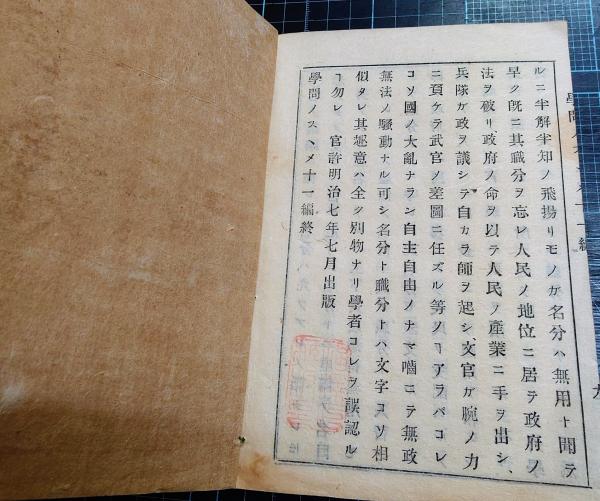 ルニ半解半知ノ飛揚リモノガ名分ハ無用ト聞テ
早ク既ニ其職分ヲ忘レ人民ノ地位ニ居テ政府ノ
法ヲ破リ政府ノ命ヲ以テ人民ノ產業ニ手ヲ出シ、
兵隊ガ政ヲ議シテ自カラ師ヲ起シ文官ガ腕ノ力
ニ負ケテ武官ノ差圖ニ任ズル等ノヿアラバコレ
コソ國ノ大亂ナラン自主自由ノナマ嚙ニテ無政
無法ノ騷動ナル可シ名分ト職分トハ文字コソ相
似タレ其趣意ハ全ク別物ナリ學者コレヲ誤認ル
ヿ勿レ 官許明治七年七月出版
學問ノスヽメ十一編終